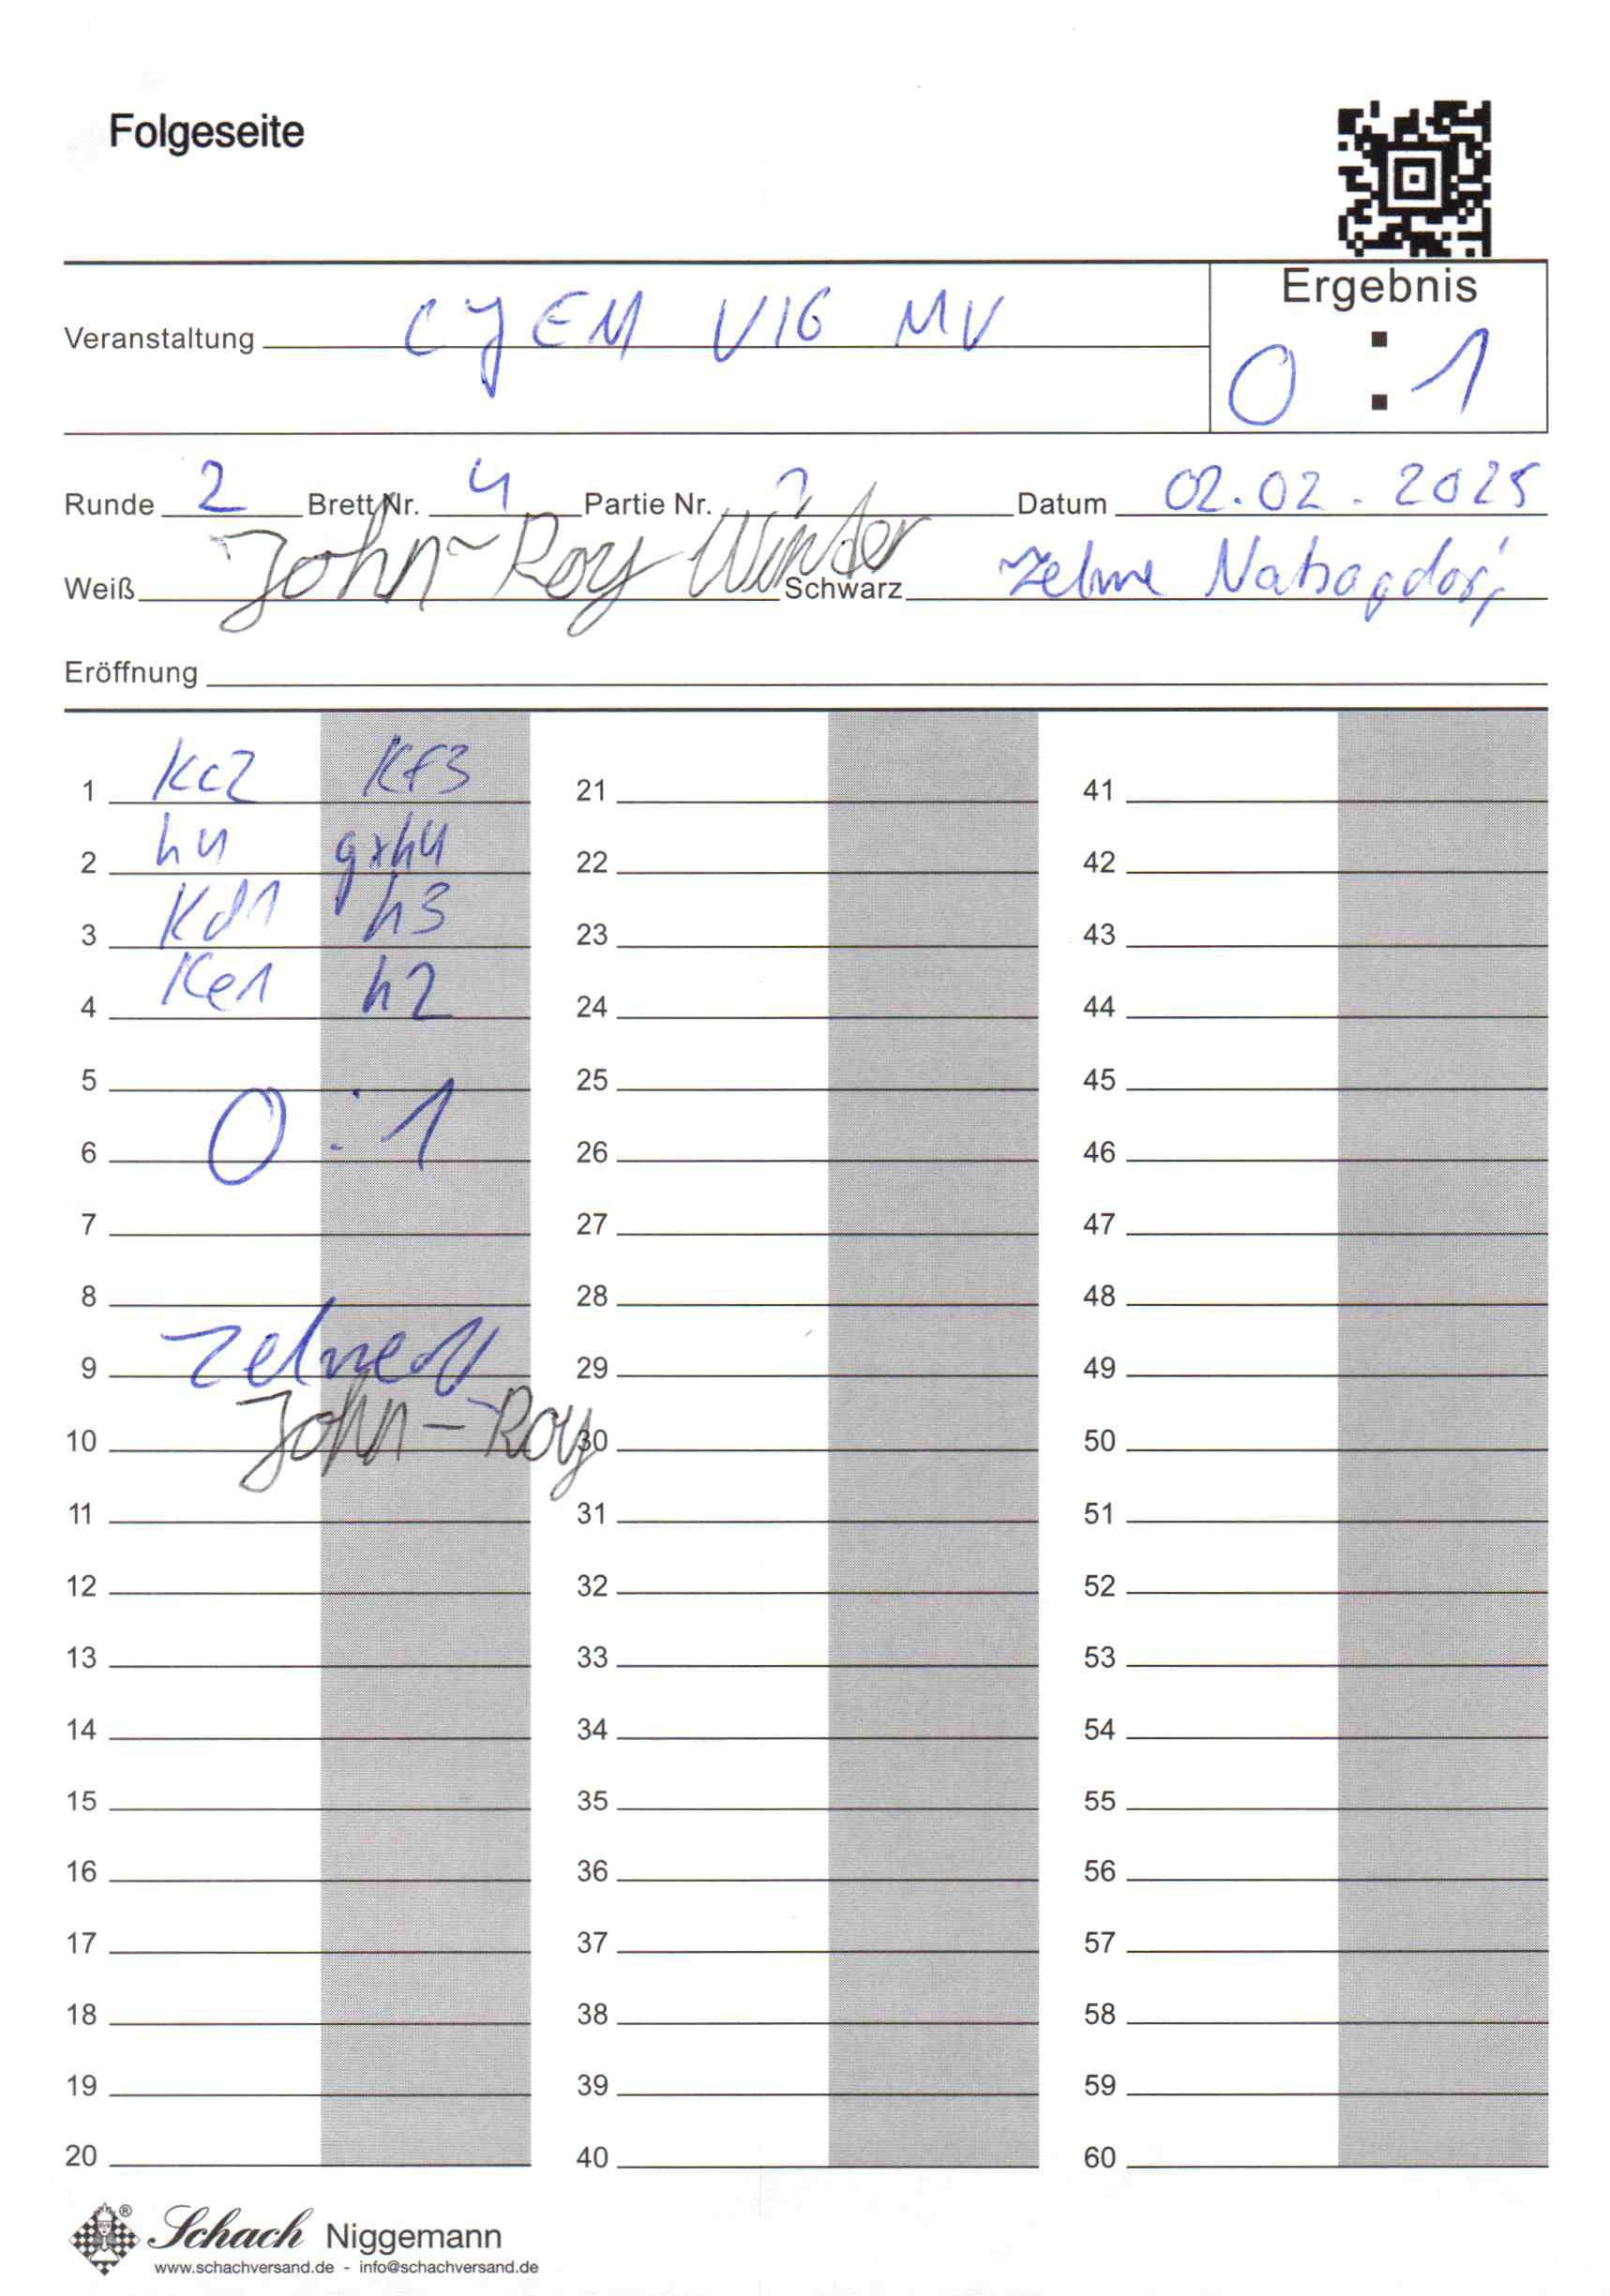 Folgeseite
Ergebnis
Veranstaltung CJEM V16 MV 0 : 1
Runde 2 Brett Nr. 4 Partie Nr. 7 Datum 02.02.2025
Weiß John-Roy Winter Schwarz Zelme
Eröffnung
1 Kc2 Kf3 21 41
2 h4 gxh4 22 42
3 Kd1 h3 23 43
4 Ke1 h2 24 44
5 25 45
0 : 1
6 26 46
7 27 47
8 28 48
9 29 49
10 John-Roy 30 50
11 31 51
12 32 52
13 33 53
14 34 54
15 35 55
16 36 56
17 37 57
18 38 58
19 39 59
20 40 60
Schach Niggemann
www.schachversand.de - info@schachversand.de